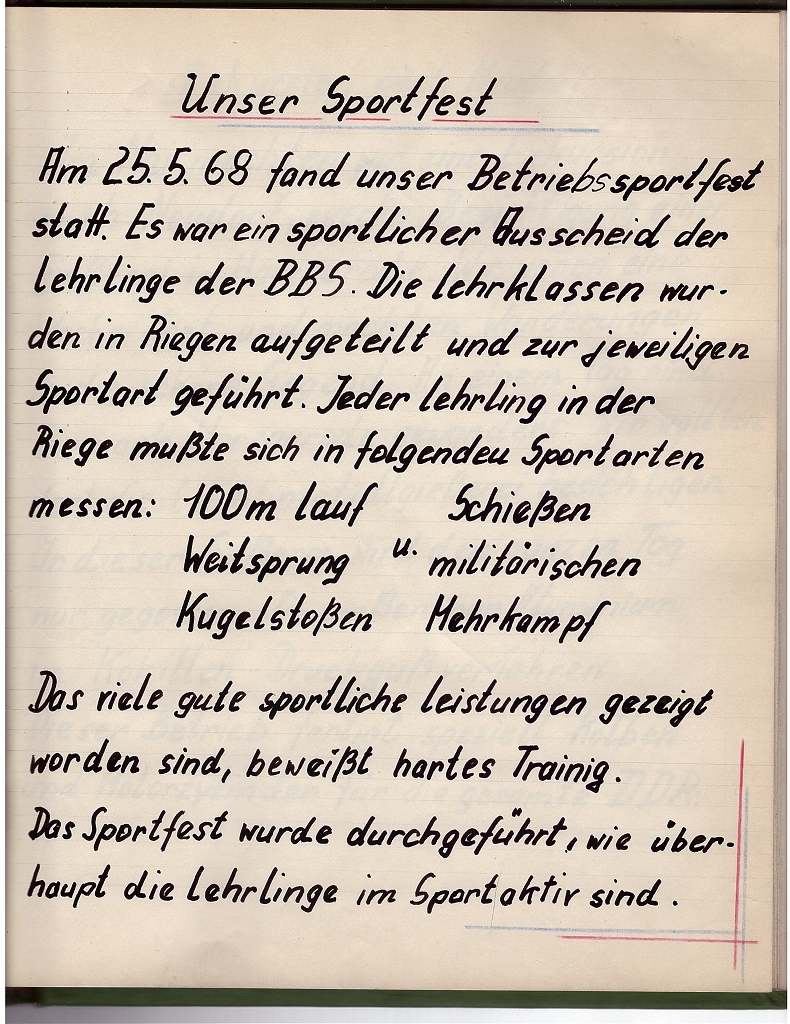 Unser Sportfest
Am 25.5.68 fand unser Betriebssportfest
statt. Es war ein sportlicher Ausscheid der
Lehrlinge der BBS. Die Lehrklassen wur-
den in Riegen aufgeteilt und zur jeweiligen
Sportart geführt. Jeder Lehrling in der
Riege mußte sich in folgenden Sportarten
messen: 100m Lauf Schießen
Weitsprung u. militärischen
Kugelstoßen Mehrkampf
Das viele gute sportliche Leistungen gezeigt
worden sind, beweißt hartes Trainig.
Das Sportfest wurde durchgeführt, wie über-
haupt die Lehrlinge im Sport aktiv sind.